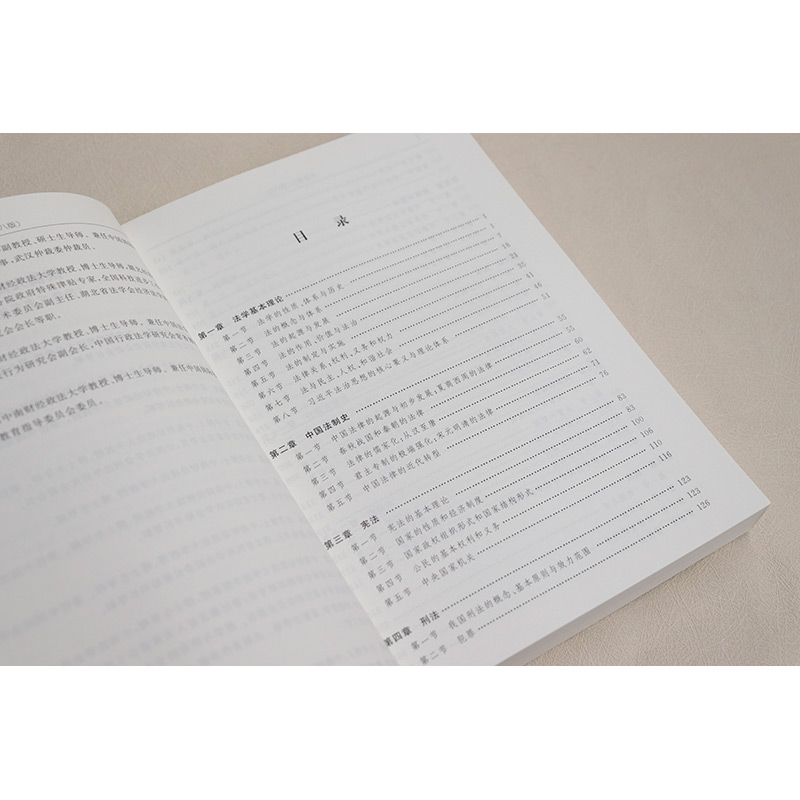 八版)
副教授,硕士生导师。兼任中南
事,武汉仲裁委仲裁员。
财经政法大学教授,博士生导师。
院政府特殊津贴专家,全国科技进步
术委员会副主任,湖北省法学会经济
会会长等职。
财经政法大学教授,博士生导师。兼任
行为研究会副会长,中国行政法学研究会
中南财经政法大学教授,博士生导师。兼任中国
教育指导委员会委员。
目 录
第一章 法学基本理论 1
第一节 法学的性质、体系与历史
第二节 法的概念与体系
第三节 法的起源与发展
第四节 法的作用、价值与法治
第五节 法的制定与实施
第六节 法律关系:权利、义务和权力
第七节 法与民主、人权、和谐社会
第八节 习近平法治思想的核心要义与理论体系 51
第二章 中国法制史 55
第一节 中国法律的起源与初步发展:夏商西周的法律 55
第二节 春秋战国和秦朝的法律 60
第三节 法律的儒家化:从汉至唐 62
第四节 君主专制的极端强化:宋元明清的法律 71
第五节 中国法律的近代转型 76
第三章 宪法 83
第一节 宪法的基本理论 83
第二节 国家的性质和经济制度 100
第三节 国家政权组织形式和国家结构形式 106
第四节 公民的基本权利和义务 110
第五节 中央国家机关 116
第四章 刑法 123
第一节 我国刑法的概念、基本原则与效力范围 123
第二节 犯罪 126